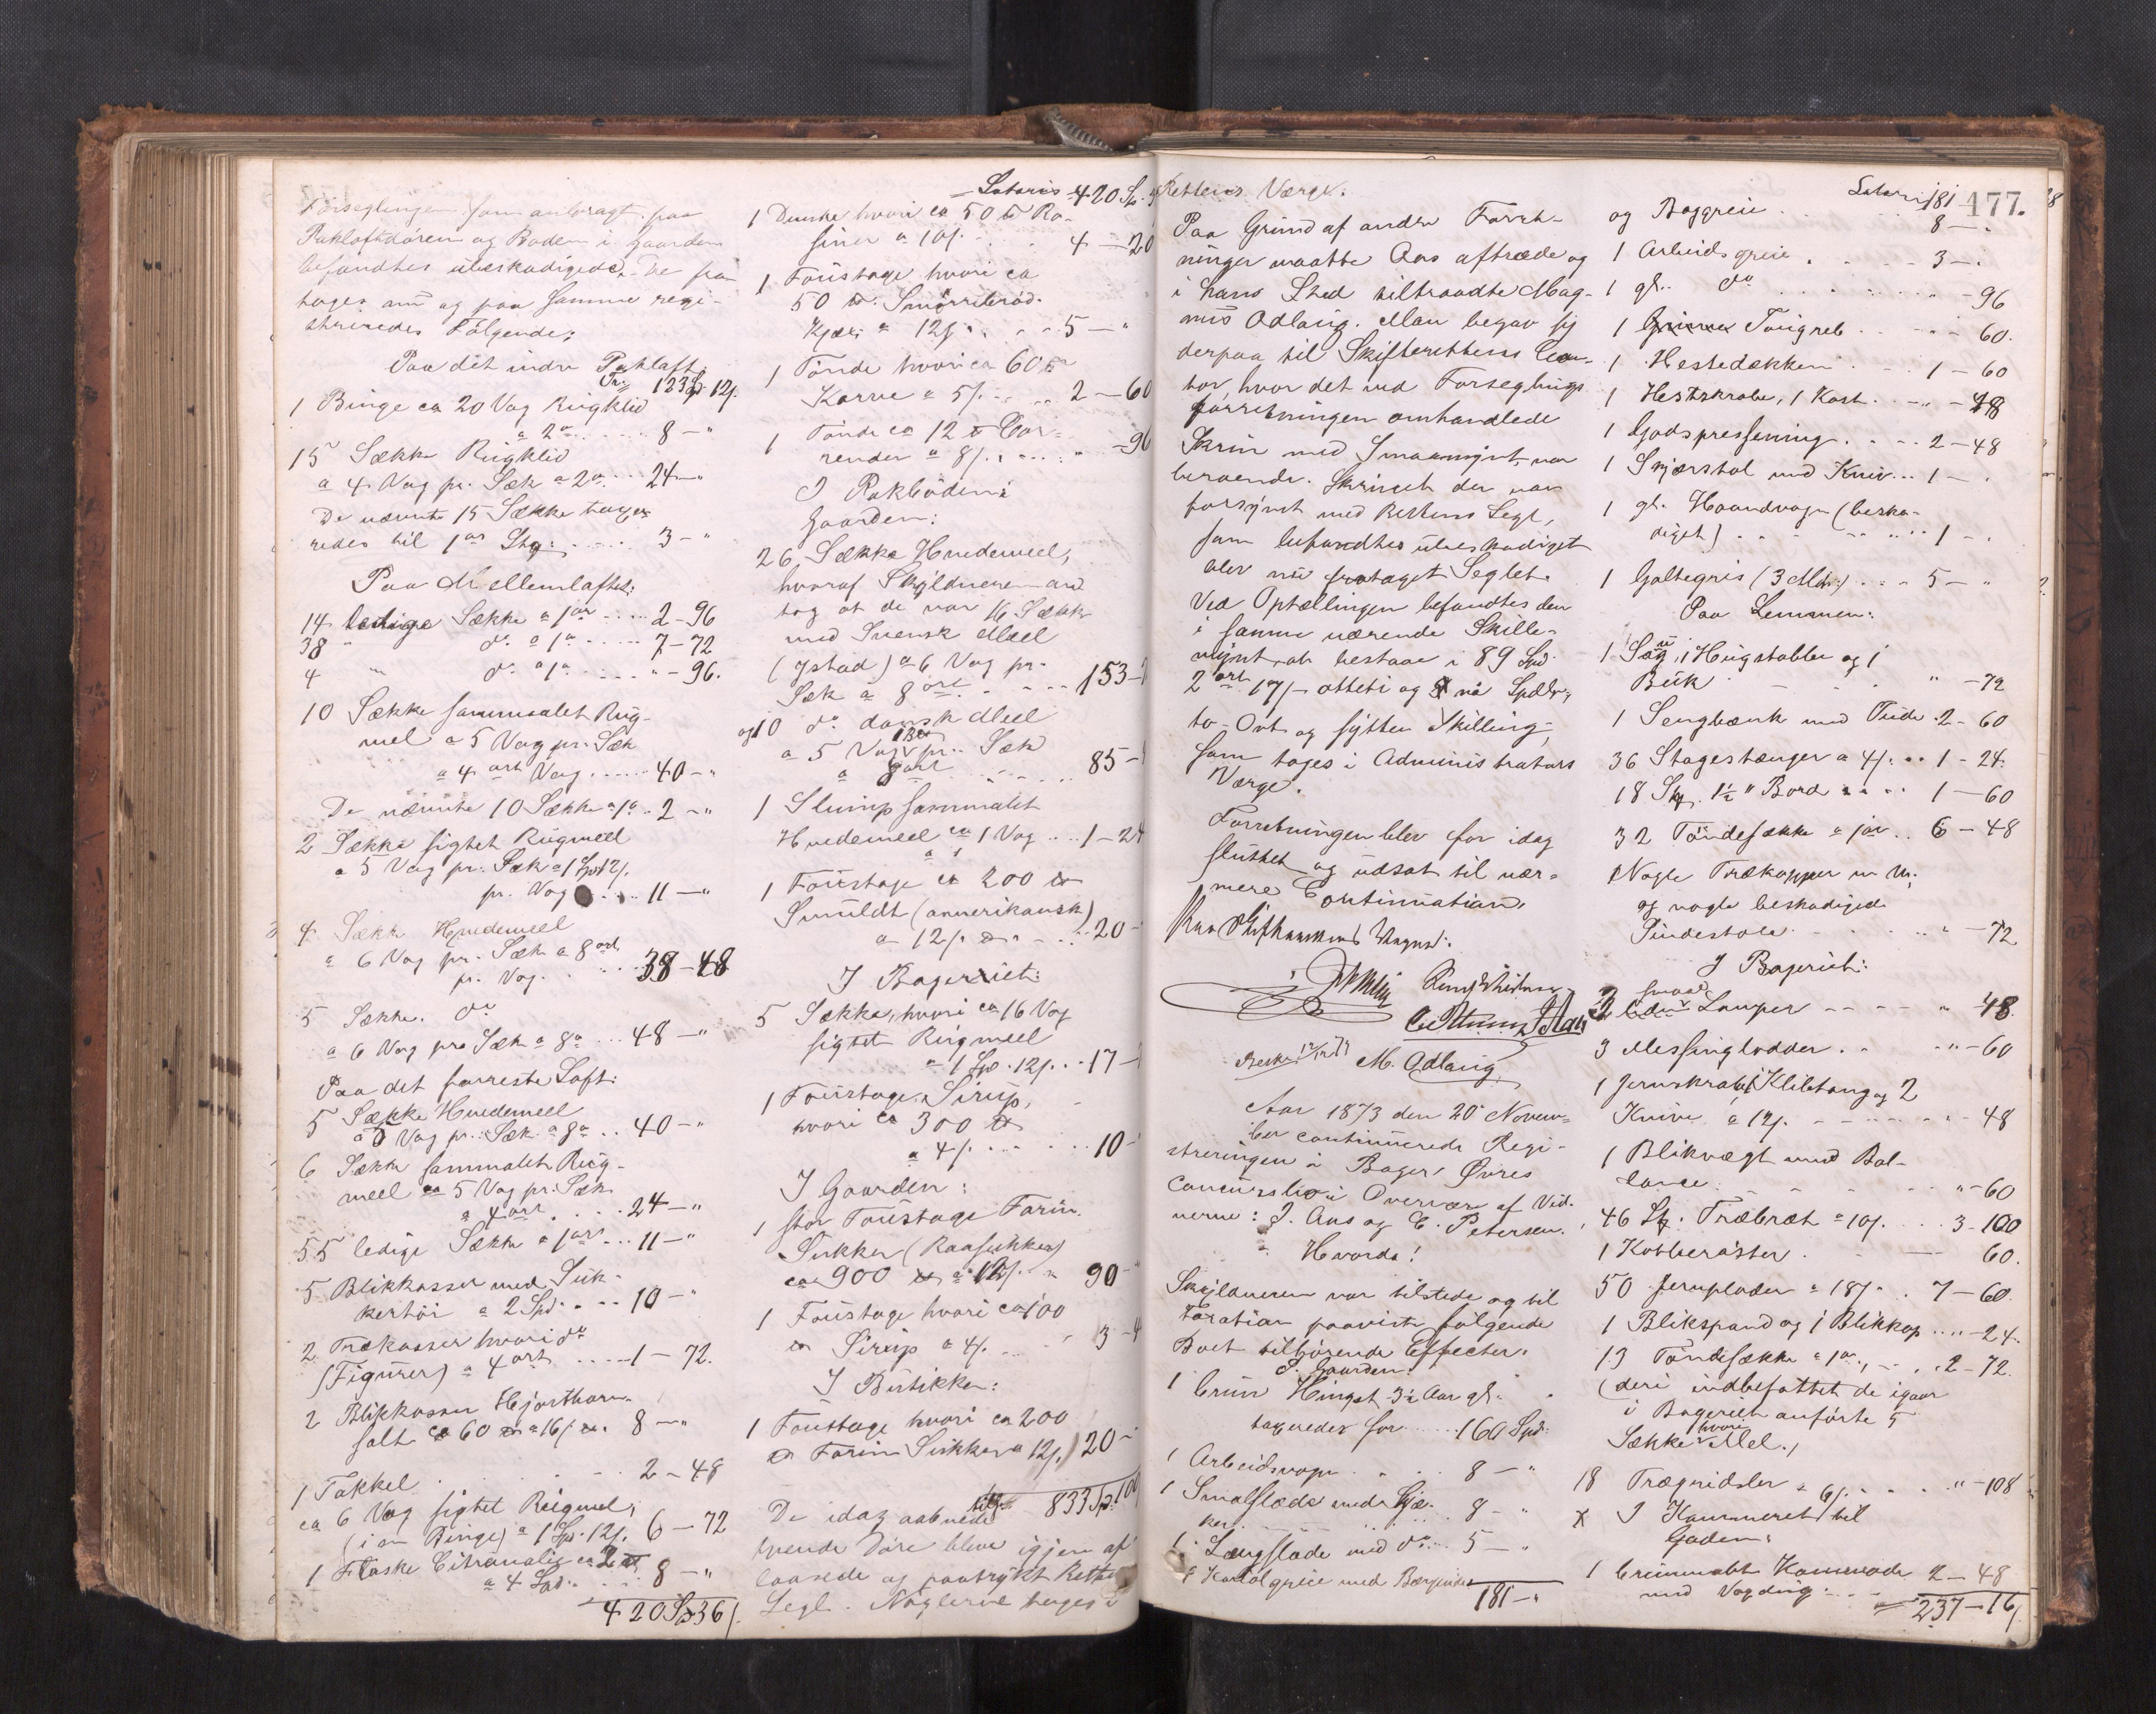 Forseglingen som anbragt paa
Pakloftdören og Boden i Gaarden
befandtes ubeskadigede. De fra-
toges nu og paa samme regi-
streredes Fölgende:
Paa det indre Pakloft.
Tr. 123 Spd. 12 s.
1 Binge ca 20 Vog Rugklid
a 2 ort ..... 8 - "
15 Sække Rugklid
a 4 Vog pr. Sæk a 2 o. ... 24 - "
De nævnte 15 Sække taxe-
redes til 1 ort Stk. .... 3 - "
Paa Mellemloftet:
14 ledige Sække a 1 ort .... 2 - 96
38 " do. a 1 o. .... 7 - 72
4 " do. a 1 o. .... " - 96.
10 Sække sammalet Rug-
mel a 5 Vog pr. Sæk
a 4 ort Vog ...... 40 - "
De nævnte 10 Sække a 1 o. .. 2 - "
2 Sække sigtet Rugmeel
a 5 Vog pr. Sæk a 1 Spd 12 s.
pr. Vog .... 11 - "
4 Sække Hvedemeel
a 6 Vog pr. Sæk a 8 ort
pr. Vog. .... 38 - 48
5 Sække. do
a 6 Vog pr. Sæk a 8 o. ... 48 - "
Paa det forreste Loft:
5 Sække Hvedemeel
a 5 Vog pr. Sæk a 8 o. .. 40 - "
6 Sække sammalet Rug-
meel ca 5 Vog pr. Sæk
a 4 ort .... 24 - "
55 ledige Sække a 1 ort ... 11 - "
5 Blikkasser med Suk-
kertöi a 2 Spd. .... 10 - "
2 Trækasser hvori do
(Figurer) a 4 ort ..... 1 - 72.
2 Blikkasser Hjorthorn-
salt ca 60 ℔ a 16 s. ℔. 8 - "
1 Takkel ...... 2 - 48
ca 6 Vog sigtet Rugmel,
(i en Binge) a 1 Spd. 12 s. 6 - 72
1 Flaske Citronolie ca 2 ℔
a 4 Spd. .... 8 - "
420 Sp 36 s.
Lateris 420 Sp.
1 Dunke hvori ca 50 ℔ Ro-
siner a 10 s. .... 4 - 20
1 Foustage hvori ca
50 ℔. Smörrebröd.
Kjæx a 12 s. .... 5 - "
1 Tönde hvori ca 60 ℔
Karve a 5 s. ... 2 - 60
1 Tönde ca 12 ℔ Cor-
render a 8 s. .... " - 96
I Pakboden i
Gaarden:
26 Sække Hvedemeel,
hvoraf Skyldneren an-
tog at de var 16 Sække
med Svensk Meel
(Ystad) a 6 Vog pr.
Sæk a 8 ort .... 153 -
og 10 do. dansk Meel
a 5 Vog pr. Sæk
a 8 ort .... 85 -
1 Slump sammalet
Hvedemeel ca 1 Vog ... 1 - 24
1 Foustage ca 200 ℔
Smuldt (amerikansk)
a 12 s. ℔ .... 20 -
I Bageriet:
5 Sække, hvori ca 16 Vog
sigtet Rugmeel
a 1 Spd. 12 s. .. 17 -
1 Foustage Sirup,
hvori ca 300 ℔
a 4 s. .... 10 -
I Gaarden:
1 stor Foustage Farin
Sukker (Raasukker)
ca 900 ℔ a 12 s. " 90 - "
1 Foustage hvori ca 100
℔ Sirup a 4 s. ... 3 - 4
I Butikken:
1 Foustage hvori ca 200
℔ Farin Sukker a 12 s. 20 -
833 Sp. 100
De idag aabnede
tvende Döre bleve igjen af-
laasede og paatrykt Rettens
Segl. Nöglerne toges i
Rettens Værge.
Paa Grund af andre Forret-
ninger maatte Aas aftræde og
i hans Sted tiltraadte Mag-
nus Adlaug. Man begav sig
derpaa til Skifterettens Con-
tor, hvor det ved Forseglings
forretningen omhandlede
Skrin med Smaamynt, var
beroende. Skrinet der var
forsynet med Rettens Segl,
som befandtes ubeskadiget
blev nu frataget Seglet.
Ved Optællingen befandtes den
i samme værende Skille-
mynt, at bestaae i 89 Spd.
2 ort 17 s. - otteti og ni Spdlr,
to Ort og sytten Skilling,
som toges i Administrators
Værge.
Forretningen blev for idag
sluttet og udsat til nær-
mere Continuation.
M. Adlaug
Aar 1873 den 20 Novem-
ber continuerede Regi-
streringen i Bager Övres
Concursbo i Overvær af Vid-
nerne: J. Aas og C. Petersen.
Hvorda!
Skyldneren var tilstede og til
Taxation paaviste fölgende
Boet tilhörende Effecter.
I Gaarden:
1 brun Hingst 3½ Aar gl.
taxeredes for .... 160 Spd.
1 Arbeidsvogn .... 8 - "
1 Smalslæde med Skjæ-
ker .... 8 - "
1 Langslæde med do. ... 5 - "
1 Kariolgreie med
181 - "
Lateris 181
177.
og Baggreie .... 8 - "
1 Arbeidsgreie .... 3 - "
1 gl. do .... " - 96
1 Tougreb .... " - 60.
1 Hestedækken ... 1 - 60
1 Hestskrabe, 1 Kost ... " - 48
1 Godspressenning .... 2 - 48
1 Skjærstol med Kniv ... 1 - "
1 gl. Haandvogn (beska-
diget) .... 1 - "
1 Galtegris (3 Mdr.) ... 5 - "
Paa Lemmen:
1 Sag, 1 Hugstabbe og 1
Buk .... " - 72
1 Sengbænk med Pude . 2 - 60
36 Stagestænger a 4 s. .. 1 - 24.
18 Stk. 1½" Bord .... 1 - 60
32 Töndesække a 1 ort .. 6 - 48
Nogle Trækopper m. m.
og nogle beskadigede
Pindestole .... " - 72
I Bageriet:
2 smaa Lamper .... " 48
3 Messinglodder .. " - 60
1 Jernskrabe, 1 Klibetang og 2
Knive a 12 s. .... " 48
1 Blikvægt med Bal-
lance .... " - 60
46 Stk. Træbræt a 10 s. .. 3 - 100
1 Kobberöster .... 60.
50 Jernplader a 18 s. . 7 - 60
1 Blikspand og 1 Blikkop .. " - 24.
13 Töndesække a 1 ort .. 2 - 72.
(deri indbefattet de igaar
i Bageriet anförte 5
Sække hvori Mel.)
18 Trægnidsler a 6 s. .... " - 108
I Kammeret til
Gaden:
1 brunmalt Kommode 2 - 48
med Voxdug
237 - 16 s.